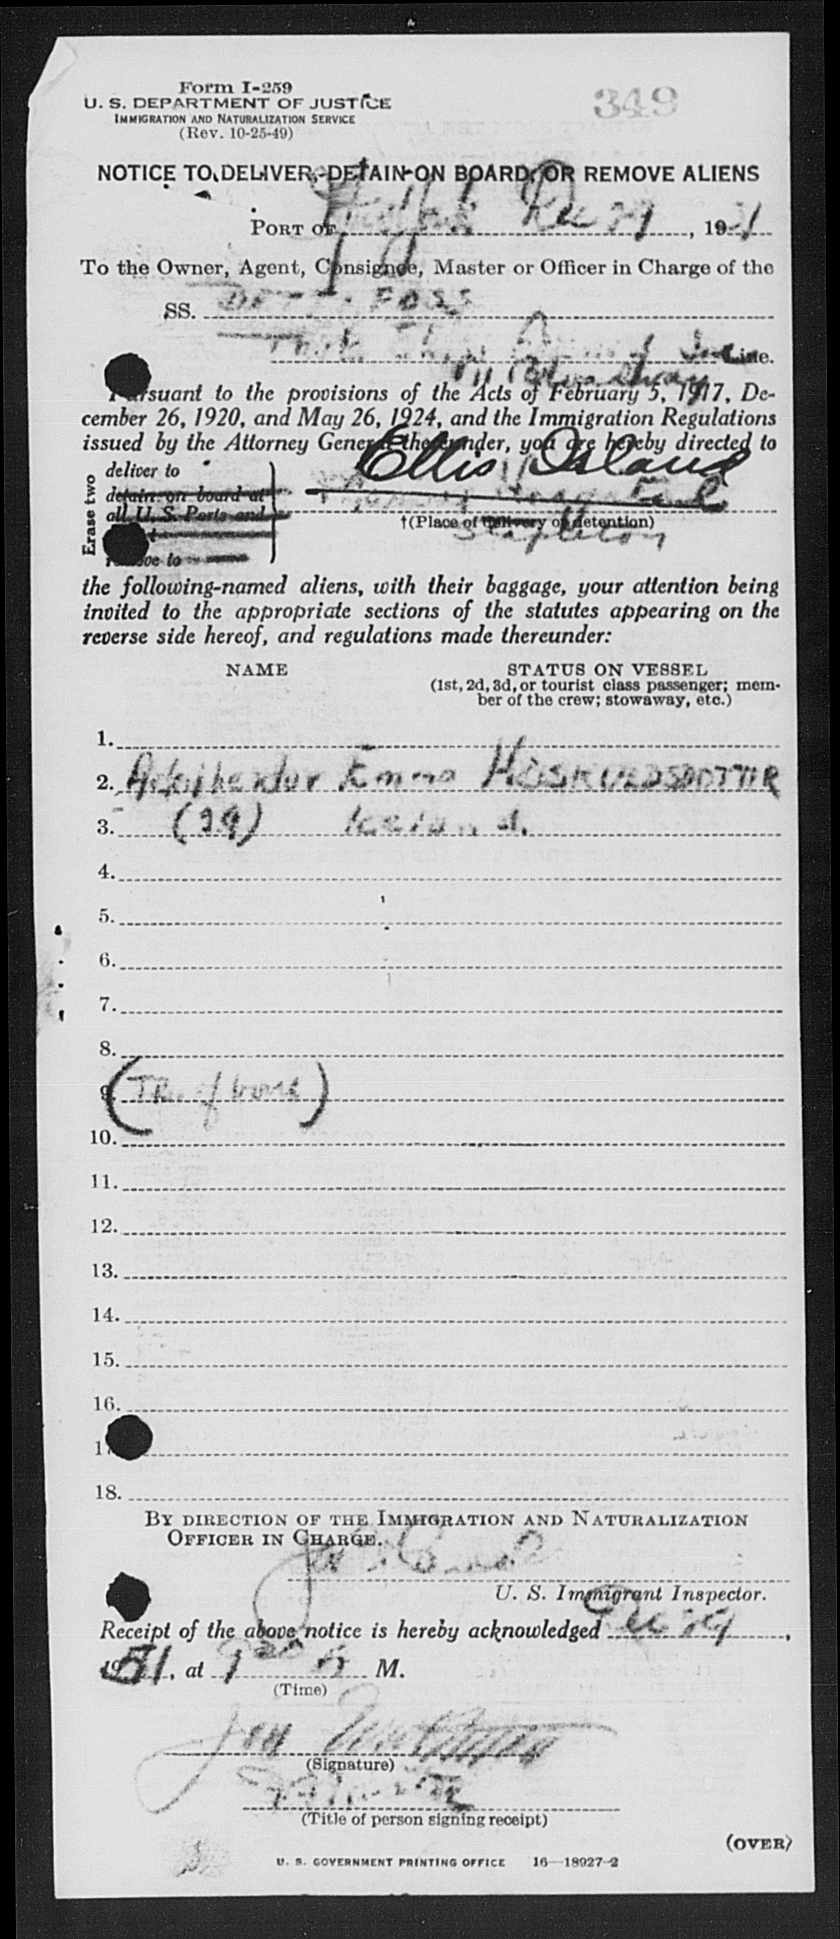 Form I-259
349
U. S. DEPARTMENT OF JUSTICE
IMMIGRATION AND NATURALIZATION SERVICE
(Rev. 10-25-49)
NOTICE TO DELIVER, DETAIN ON BOARD, OR REMOVE ALIENS
PORT OF Dec 29, 1951
To the Owner, Agent, Consignee, Master or Officer in Charge of the
SS. FOSS
Line.
Broadway
Pursuant to the provisions of the Acts of February 5, 1917, De-
cember 26, 1920, and May 26, 1924, and the Immigration Regulations
issued by the Attorney General thereunder, you are hereby directed to
Erase two
deliver to
detain on board at
all U. S. Ports and
remove to
Ellis Island
†(Place of delivery or detention)
Stapleton
the following-named aliens, with their baggage, your attention being
invited to the appropriate sections of the statutes appearing on the
reverse side hereof, and regulations made thereunder:
NAME
STATUS ON VESSEL
(1st, 2d, 3d, or tourist class passenger; mem-
ber of the crew; stowaway, etc.)
1.
2. Emma HOSKULDSDOTTIR
3. (29) Iceland.
4.
5.
6.
7.
8.
9.
10.
11.
12.
13.
14.
15.
16.
17.
18.
BY DIRECTION OF THE IMMIGRATION AND NATURALIZATION
OFFICER IN CHARGE.
U. S. Immigrant Inspector.
Receipt of the above notice is hereby acknowledged Dec 29,
1951, at M.
(Time)
(Signature)
(Title of person signing receipt)
(OVER)
U. S. GOVERNMENT PRINTING OFFICE 16—18927-2